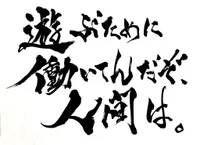 遊ぶために
働いてんだぞ、
人間は。